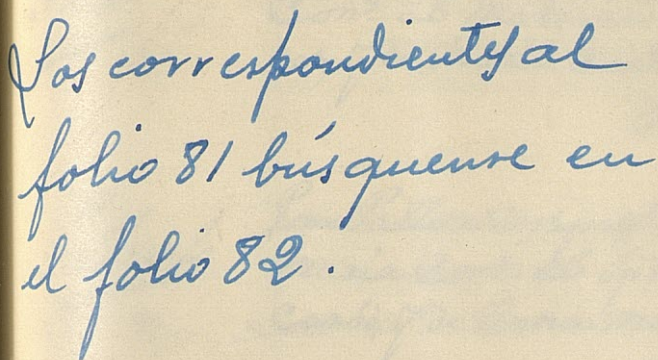 Los correspondientes al
folio 81 búsquense en
el folio 82.